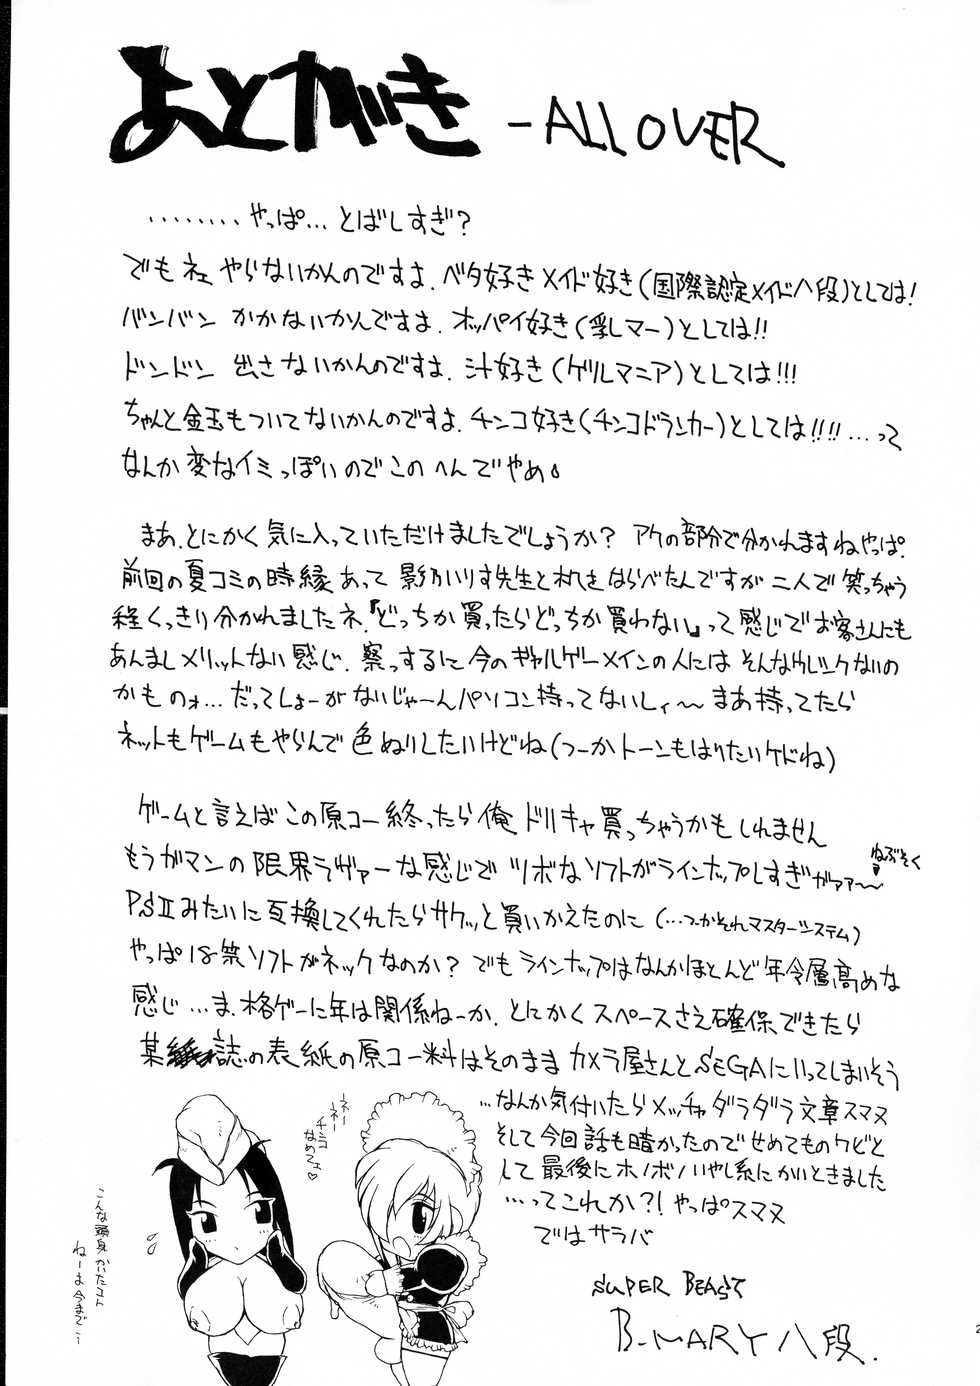 あとがき -ALL OVER
........やっぱ...とばしすぎ?
でもネェ やらないかんのですよ.ベタ好きメイド好き(国際認定メイド八段)としては!
バンバン かかないかんですよ.オッパイ好き(乳しマー)としては!!
ドンドン 出さないかんのですよ.汁好き(ゲルマニア)としては!!!
ちゃんと金玉もついてないかんのですよ.チンコ好き(チンコドランカー)としては!!!!...って
なんか変なイミっぽいのでこのへんでやめ。
まあ、とにかく気に入っていただけましたでしょうか? アケの部分で分かれますねやっぱ.
前回の夏コミの時縁あって 影乃いりす先生と机をならべたんですが二人で笑っちゃう
程くっきり分かれましたネ.『どっちか買ったらどっちか買わない』って感じでお客さんにも
あんましメリットない感じ.察っするに今のギャルゲーメインの人にはそんなウレシクないの
かものォ...だってしょーがないじゃーんパソコン持ってないしィ〜まあ持ってたら
ネットもゲームもやらんで色ぬりしたいけどね(つーかトーンもはりたいケドね)
ゲームと言えばこの原コー終ったら俺ドリキャ買っちゃうかもしれません
もうガマンの限界ラヴァーな感じでツボなソフトがラインナップしすぎがァァ〜
ねぶそく
PSⅡみたいに互換してくれたらサクッと買いかえたのに(...つーかそれマスターシステム)
やっぱ18禁ソフトがネックなのか?でもラインナップはなんかほとんど年令層高めな
感じ...ま.格ゲーに年は関係ねーか.とにかくスペースさえ確保できたら
某誌の表紙の原コー料はそのままカメラ屋さんとSEGAにいってしまいそう
...なんか気付いたらメッチャダラダラ文章スマヌ
そして今回話も暗かったのでせめてものケどと
して最後にホノボノいやし系にかいときました
...ってこれか?!やっぱスマヌ
ではサラバ
SUPER BEAST
B-MARY 八段.
ネーネー
チンコ
なめてェ♡
こんな頭身かいたコト
ねーよ今まで...
2